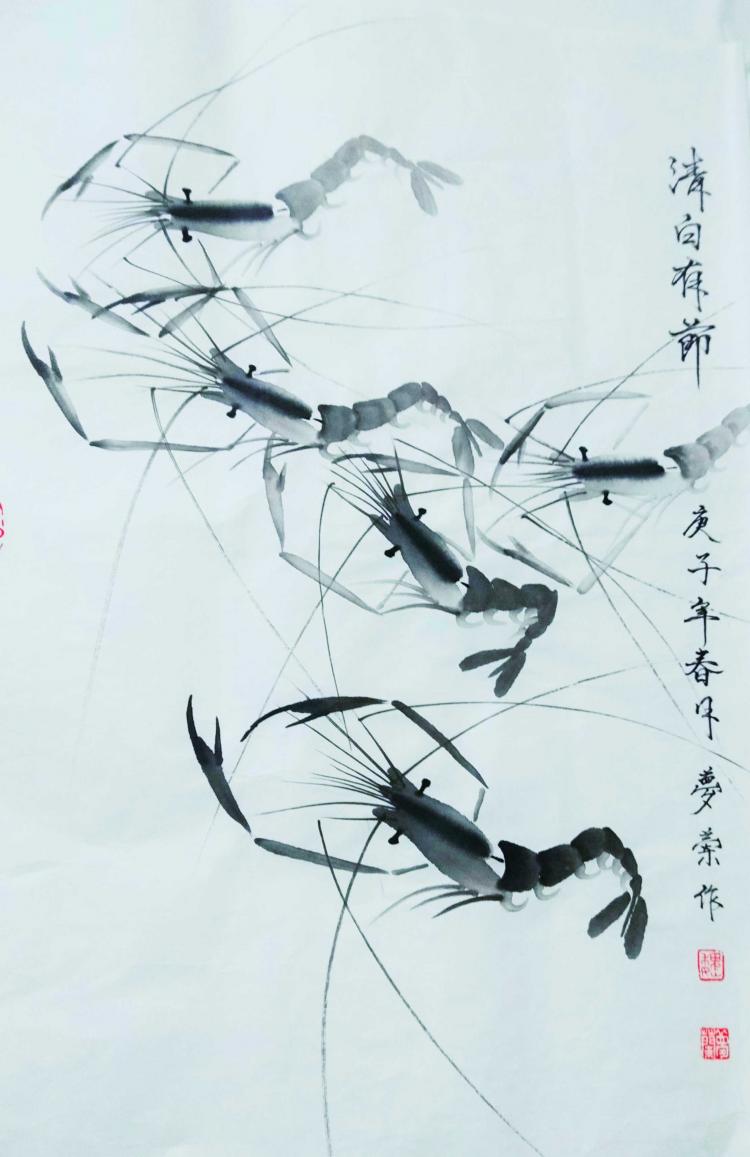 清白有節
庚子年春月夢荣作